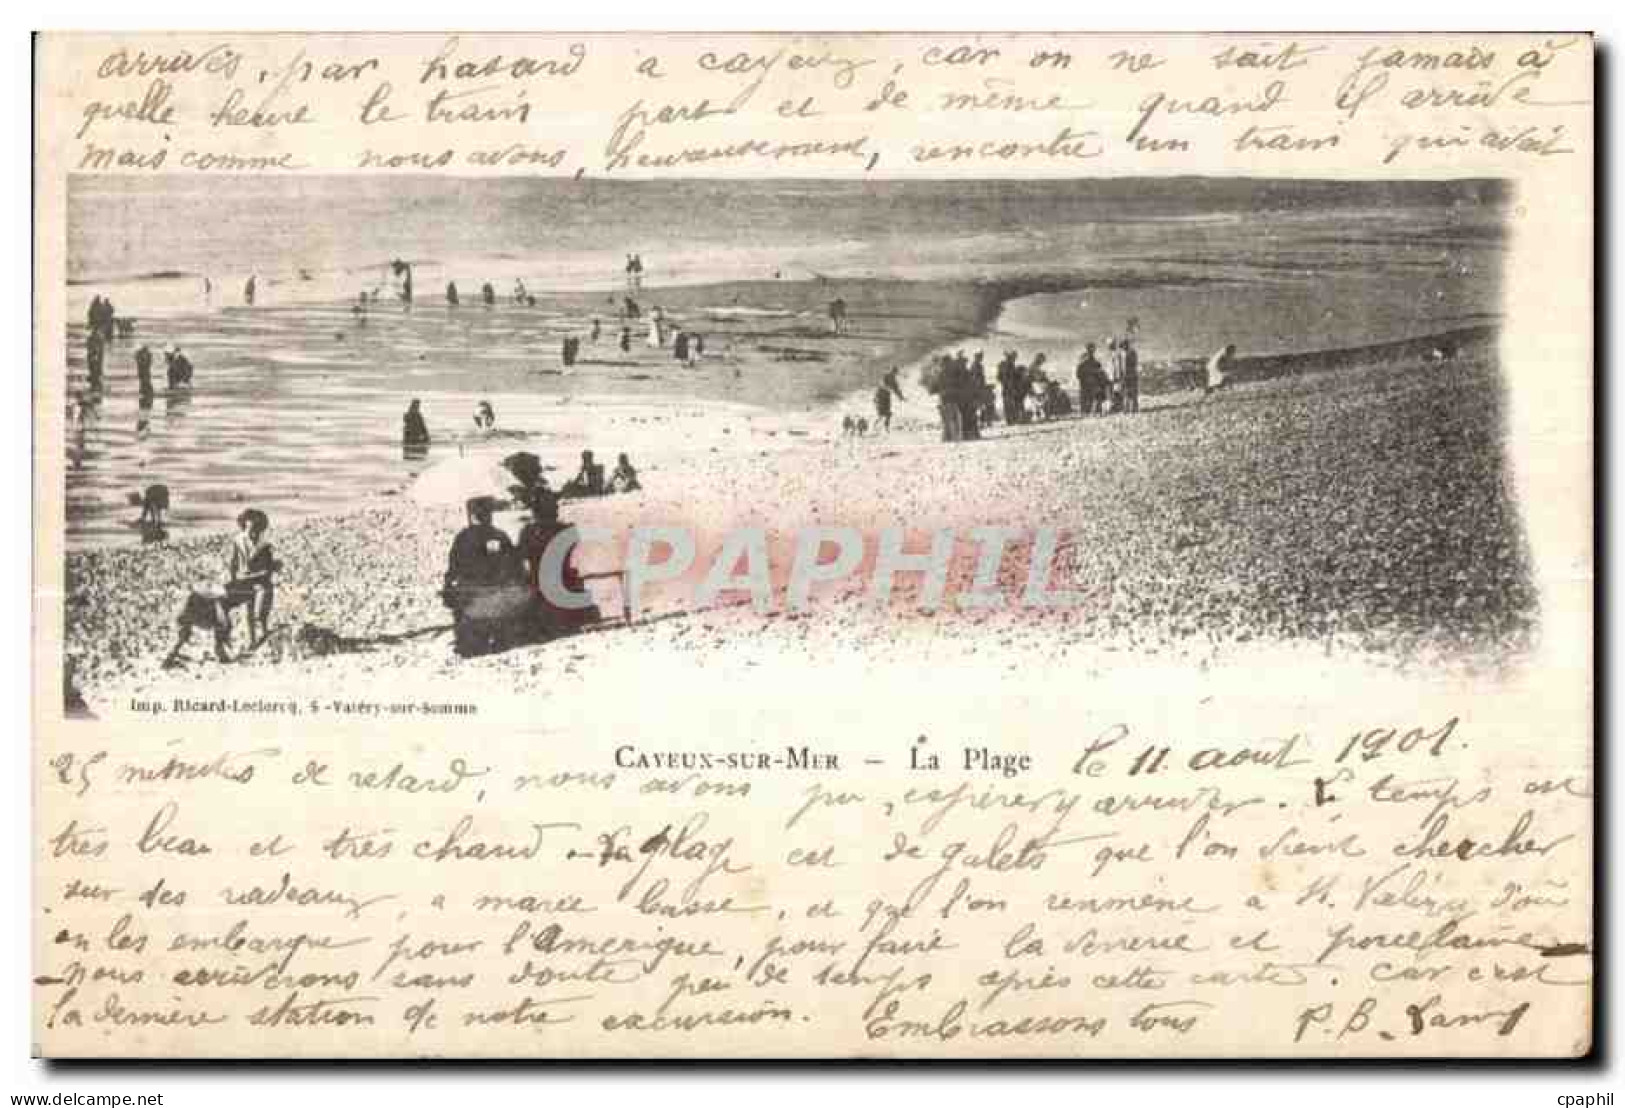 arrivés, par hasard a cayeux, car on ne sait jamais à
quelle heure le train part et de même quand il arrive
mais comme nous avons, heureusement, rencontré un train qui avait
CPAPHIL
Imp. Ricard-Leclercq, S-Valéry-sur-Somme
CAYEUX-SUR-MER – La Plage
le 11 août 1901.
25 minutes de retard, nous avons pu, espérer y arriver. Le temps est
très beau et très chaud. La plage est de galets que l'on vient chercher
sur des radeaux, a marée basse, et que l'on renmène a St. Valéry d'où
on les embarque pour l'Amérique, pour faire la verrerie et porcelaine
nous arriverons sans doute peu de temps après cette carte. Car c'est
la dernière station de notre excursion. Embrassons tous P. B.
Delcampe.net
cpaphil